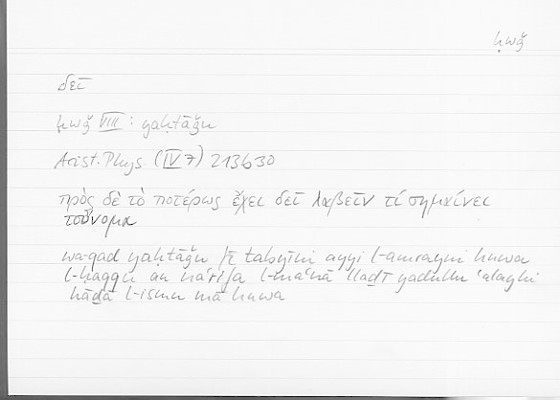 ḥwǧ
δεῖ
ḥwǧ VIII : yaḥtāǧu
Arist. Phys. (IV 7) 213b30
πρὸς δὲ τὸ ποτέρως ἔχει δεῖ λαβεῖν τί σημαίνει
τοὔνομα
wa-qad yaḥtāǧu fī tabyīni ayyi l-amrayni huwa
l-ḥaqqu an naʿrifa l-maʿnā llaḏī yadullu ʿalayhi
hāḏā l-ismu mā huwa